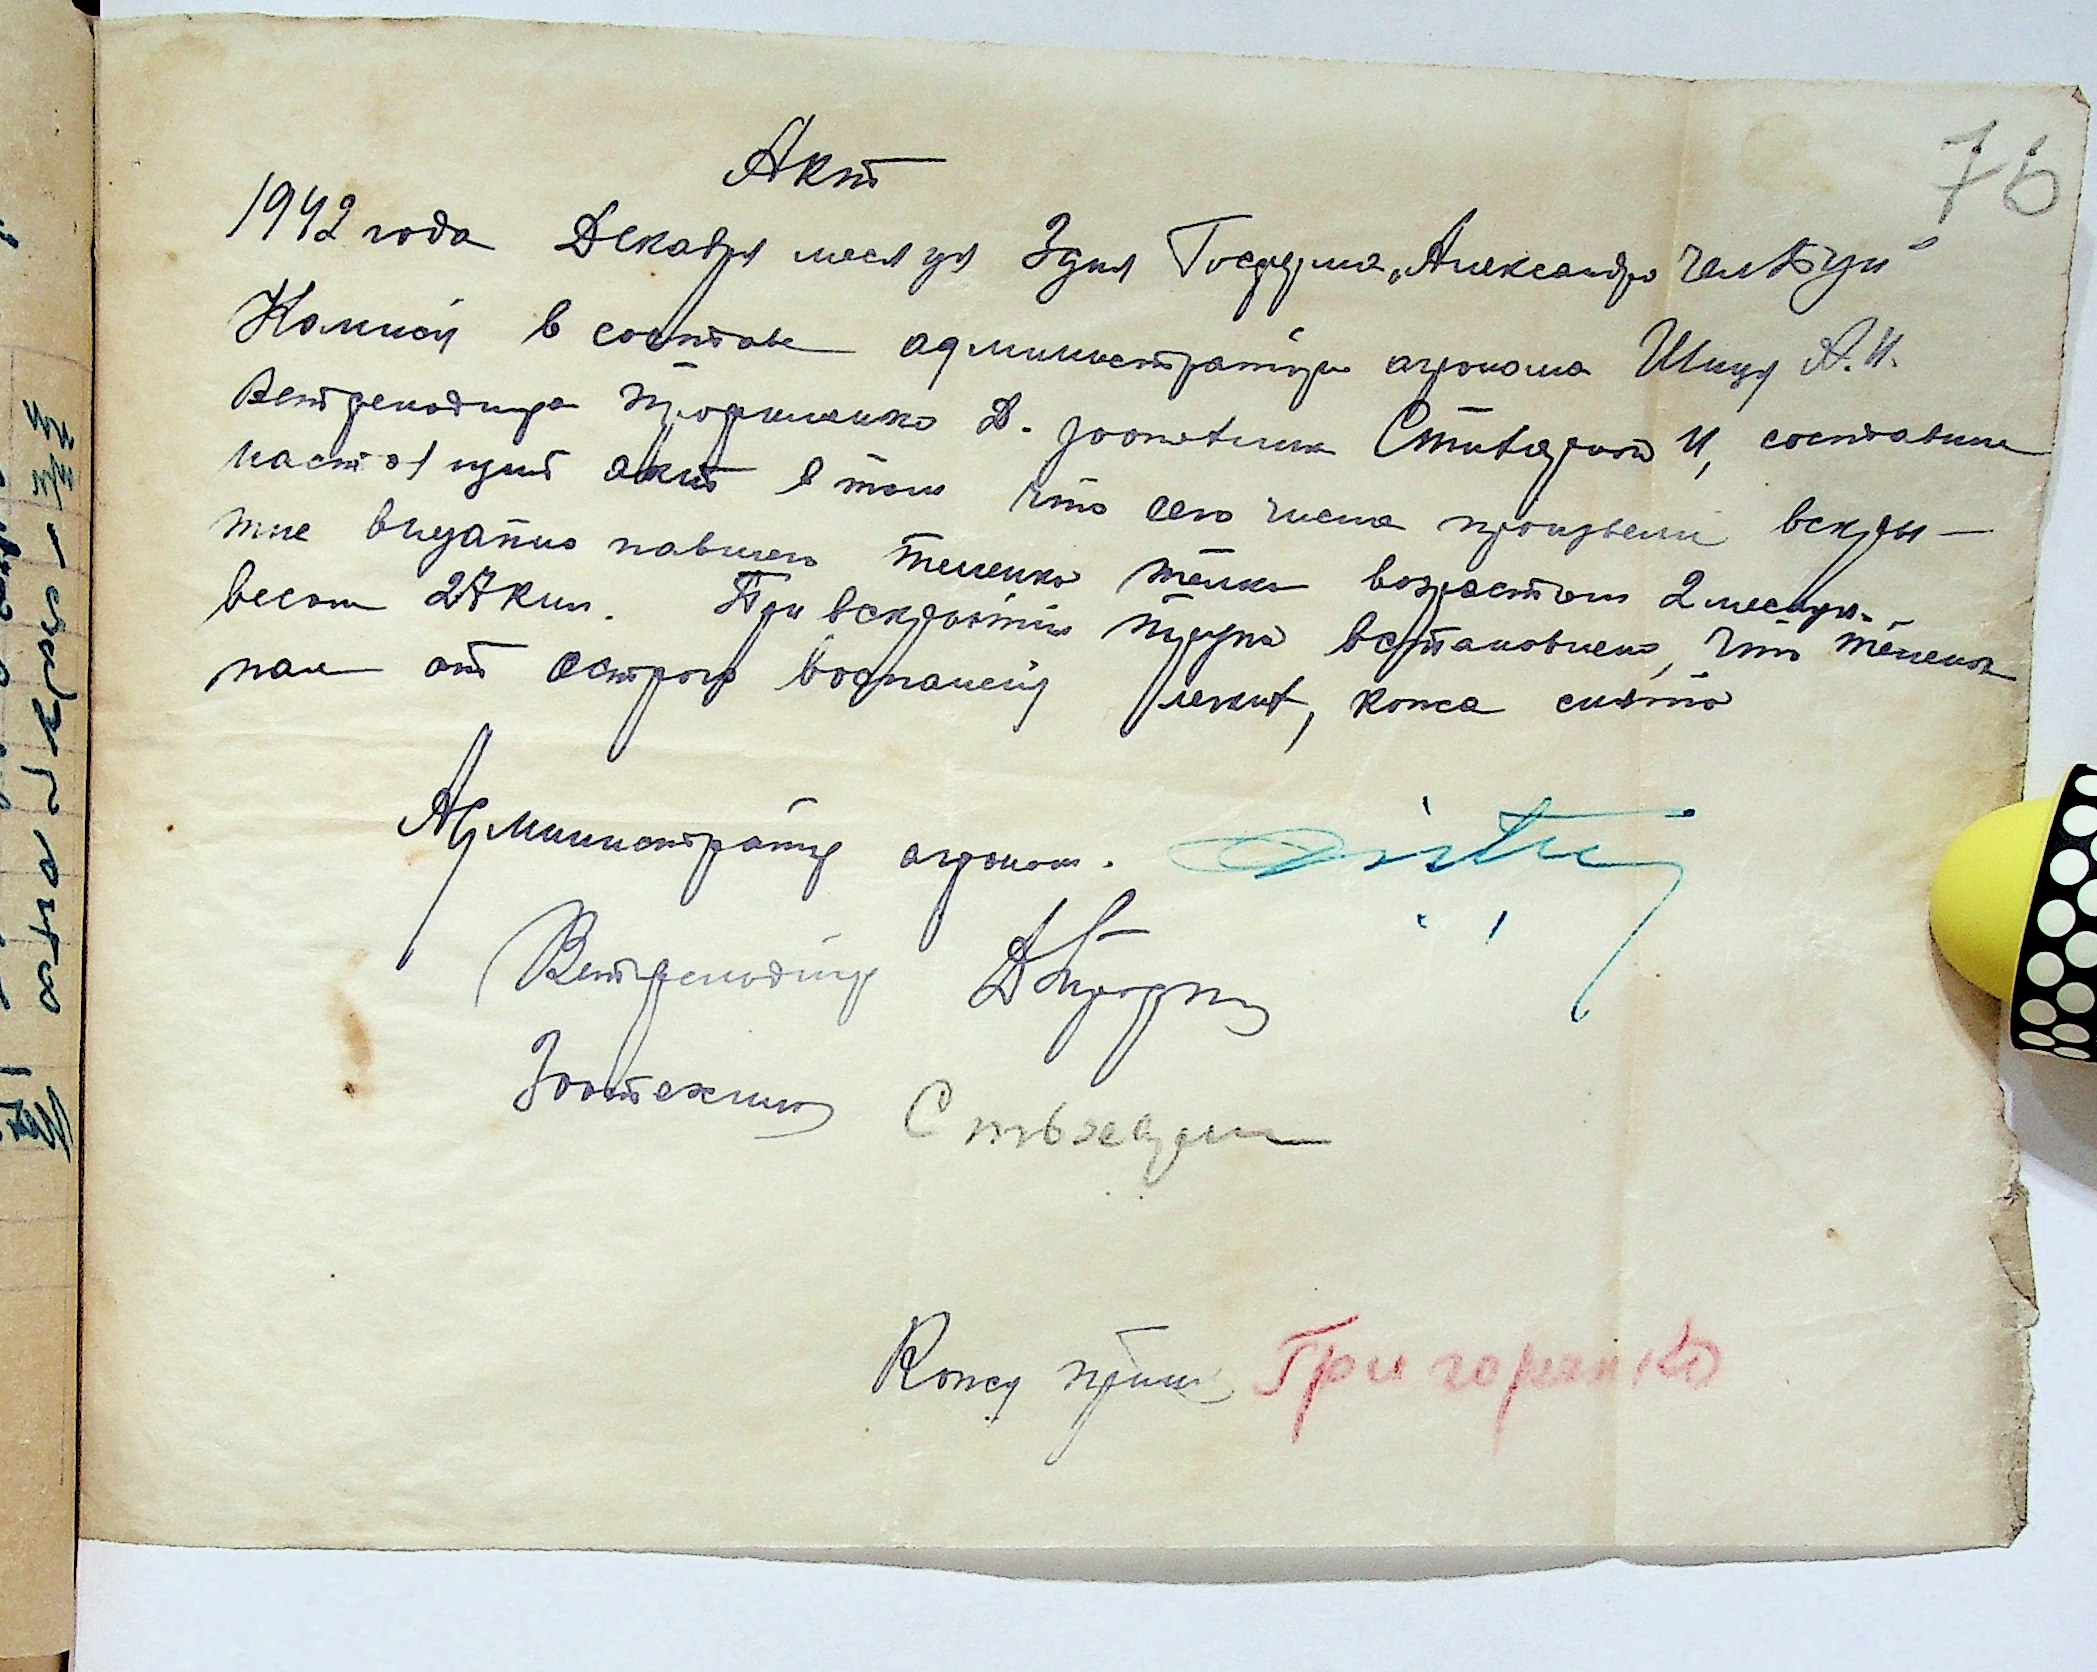 76
Акт
1942 года Декабря месяця 3 дня Госдума „Александро челбуи"
Комисия в составе администратора агронома Шицу А.И.
Ветфельдшера Профиленко Д. зоотехник И, составили
настоящий акт в том что сего числа произвели вскры-
тие внезапно павшего теленка тёлка возрастом 2 месяця.
весом 27 кил. При вскрытии трупа встановлено, что теленок
пал от острого воспаления легких, кожа снята
Администратор агроном.
Ветфельдшер
Зоотехник
Кожу принял Григоренко